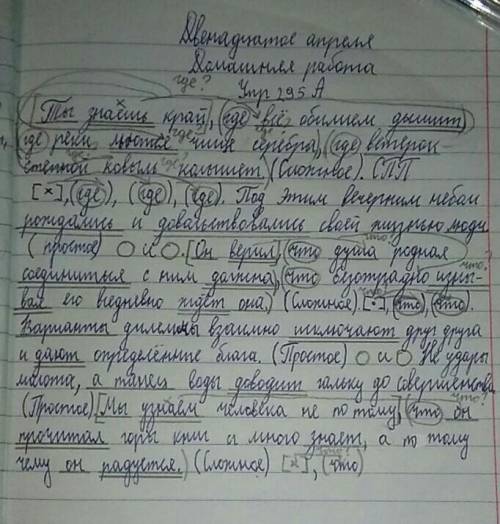 Двенадцатое апреля
Домашняя работа
где?
Упр 295 А
[Ты знаешь край], (где всё обилием дышит)
где?
(где реки льются чище серебра), (где ветерок
где?
степной ковыль колышет.) (Сложное). СПП
[×], (где), (где), (где). Под этим вечерним небом
рождались и довольствовались своей жизнью люди
что?
(простое) О и О. [Он верил], (что душа родная
что?
соединиться с ним должна), (что безотрадно изны-
вая его вседневно ждёт она.) (Сложное). [ ], (что), (что).
Варианты дилеммы взаимно исключают друг друга
и дают определённые блага. (Простое) О и О Не удары
молота, а танец воды доводит гальку до совершенства
что?
(Простое) [Мы узнаём человека не по тому], (что он
прочитал горы книг и много знает, а по тому
что?
чему он радуется.) (Сложное) [×], (что)